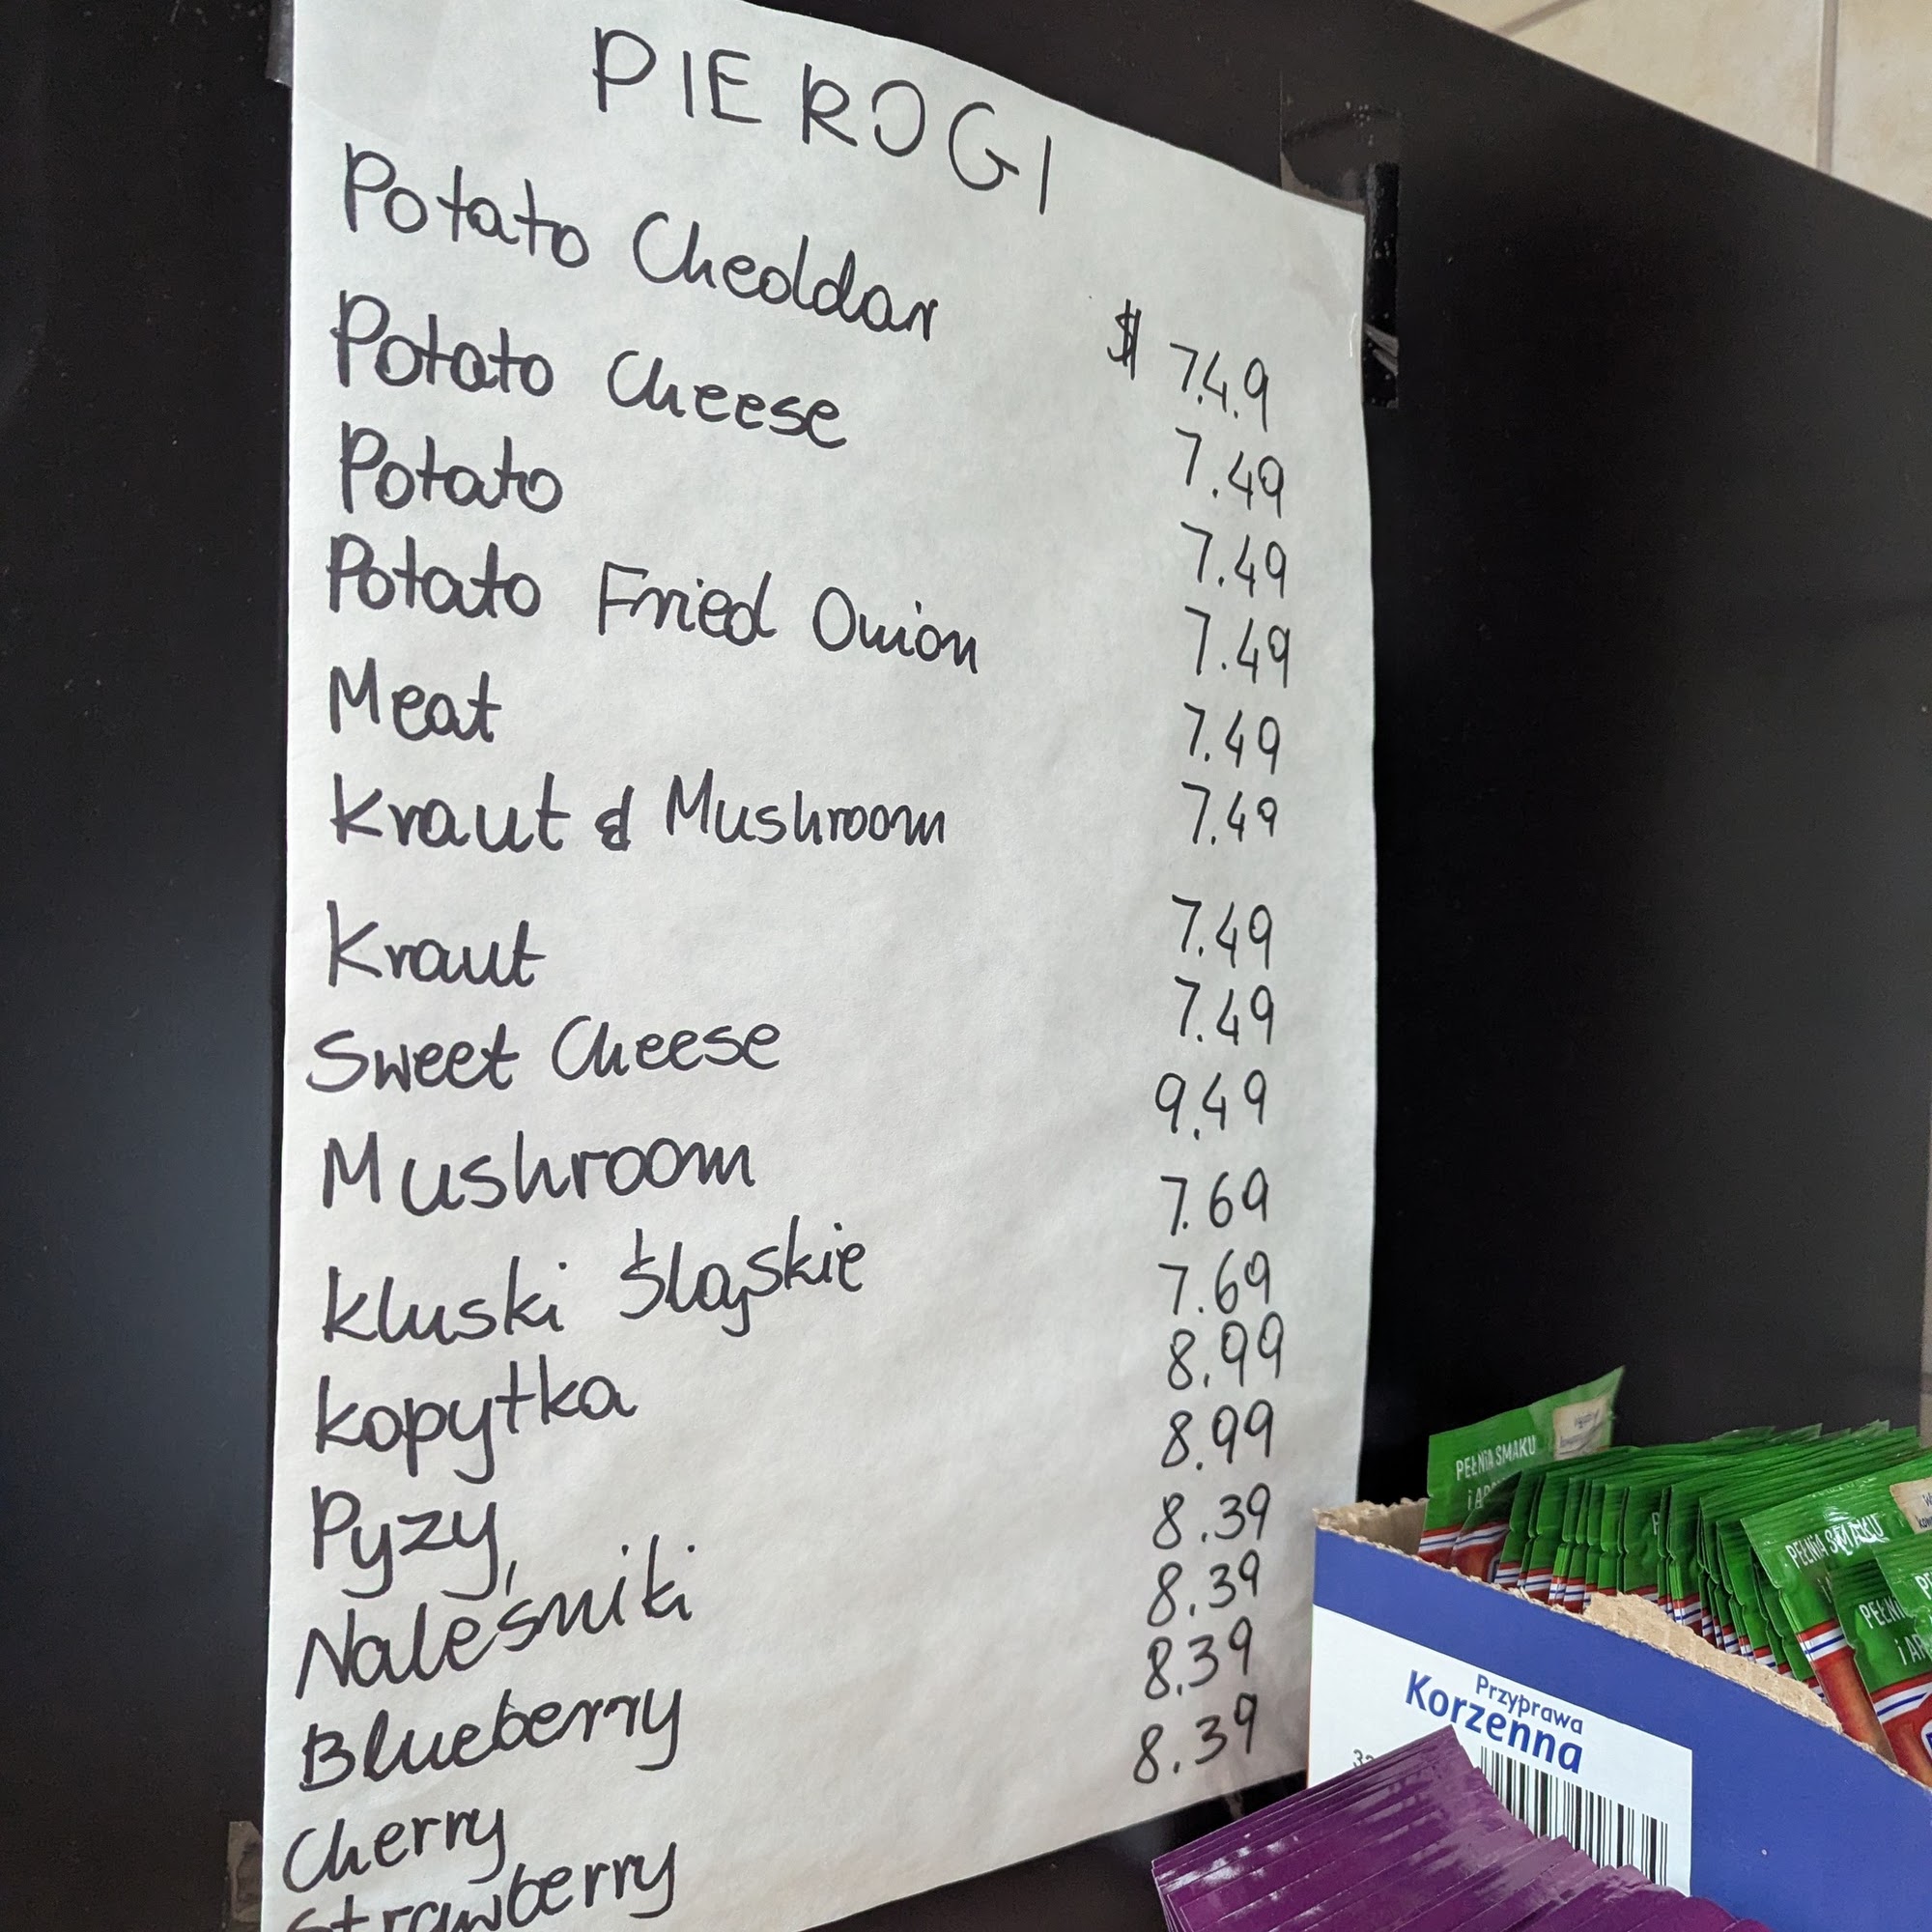 PIEROGI
Potato Cheddar $ 7.4.9
Potato Cheese 7.49
Potato 7.49
Potato Fried Onion 7.49
Meat 7.49
Kraut & Mushroom 7.49
Kraut 7.49
Sweet Cheese 7.49
Mushroom 9.49
Kluski Śląskie 7.69
Kopytka 7.69
Pyzy, 8.99
Naleśniki 8.99
Blueberry 8.39
Cherry 8.39
Strawberry 8.39
8.39
PEŁNIA SMAKU
PEŁNIA SMAKU
Przyprawa
Korzenna